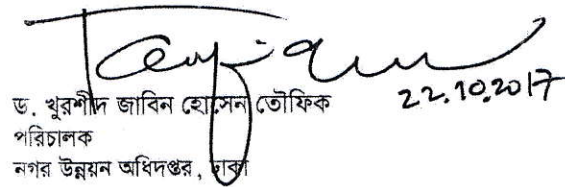 22.10.2017
ড. খুরশীদ জাবিন হোসেন তৌফিক
পরিচালক
নগর উন্নয়ন অধিদপ্তর, ঢাকা